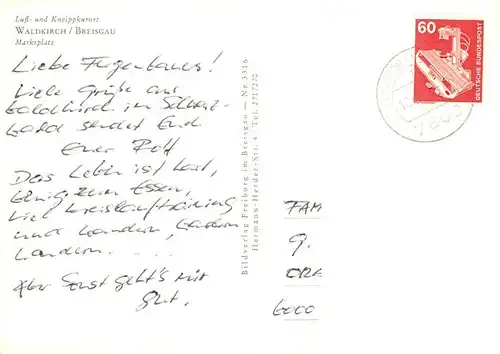 Luft- und Kneippkurort
WALDKIRCH / BREISGAU
Marktplatz
Liebe
Viele Grüße aus
Waldkirch im Schwarz-
wald sendet Euch
Euer
Das Leben ist hart,
wenig zum Essen,
viel Kreislauftraining
und wandern, wandern
wandern.....
Aber sonst geht's mir
gut.
Bildverlag Freiburg im Breisgau — Nr. 3316
Hermann-Herder-Str. 4 Tel. 2717270
60
DEUTSCHE BUNDESPOST
FAM
9.
6000